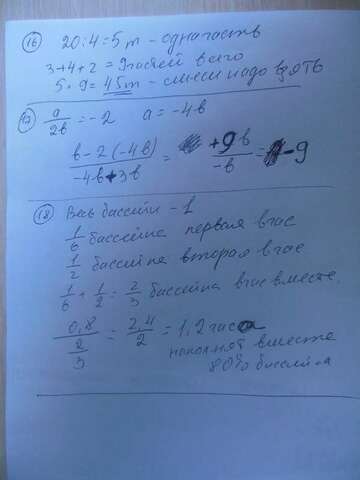 16 20:4=5т - одна часть
3+4+2=9 частей всего
5·9=45т - смеси надо взять
17 a/2b=-2 a=-4b
(b-2(-4b))/(-4b+3b) = +9b/-b = -9
18 Весь бассейн - 1
1/6 бассейна первая в час
1/2 бассейна вторая в час
1/6+1/2=2/3 бассейна в час вместе.
0,8/(2/3) = 2,4/2 = 1,2 часа
наполнят вместе
80% бассейна